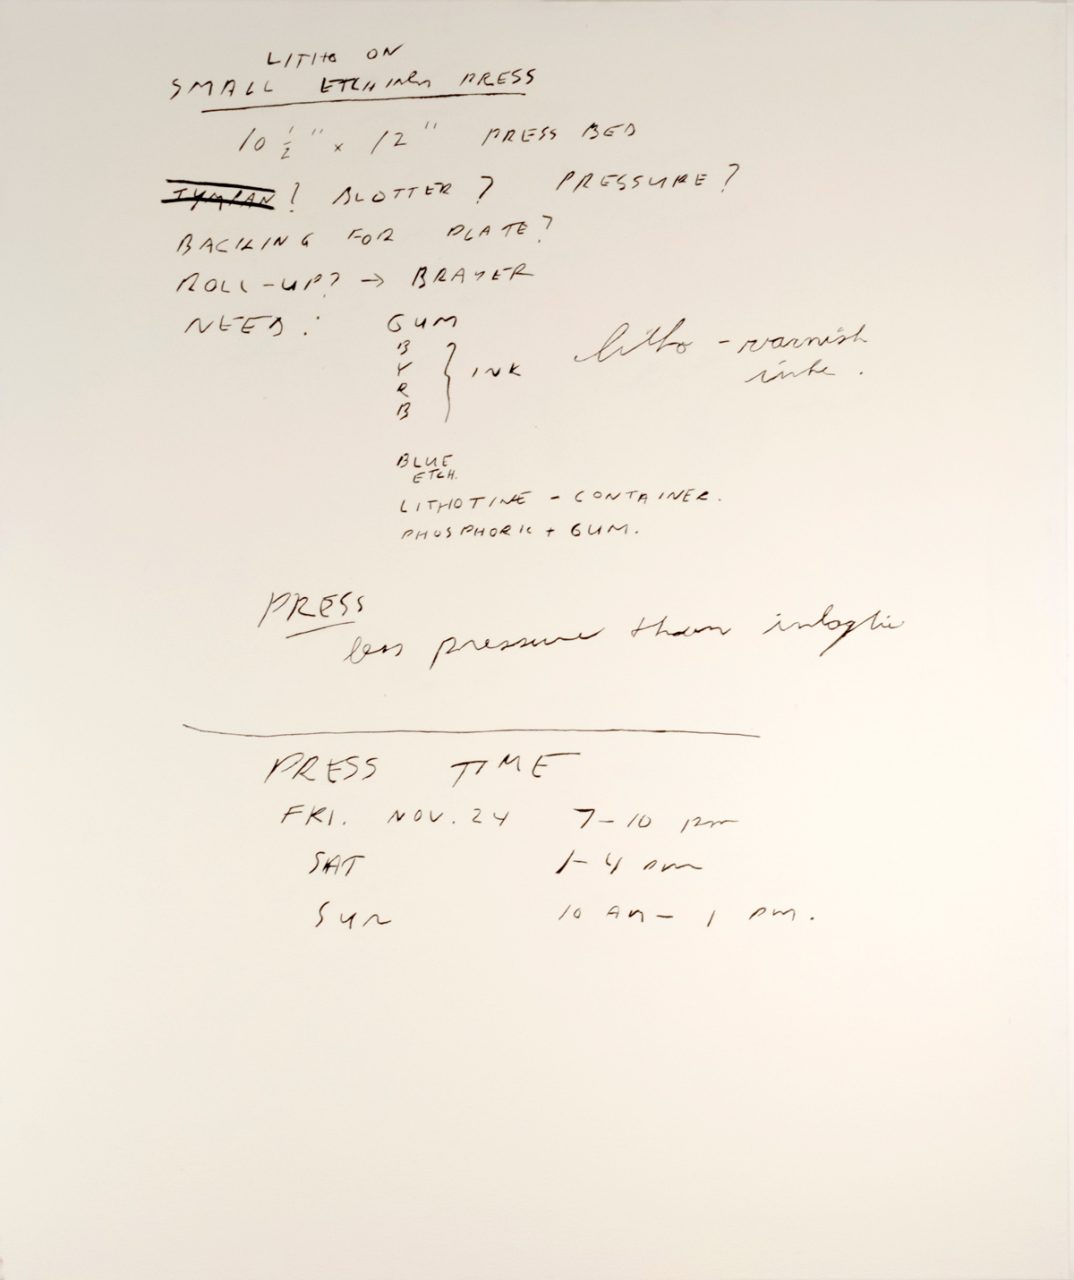 LITHO ON
SMALL ETCHING PRESS
10 1/2" x 12" PRESS BED
TYMPAN? BLOTTER? PRESSURE?
BACKING FOR PLATE?
ROLL-UP? → BRAYER
NEED: GUM
B
Y
R
B
} INK
litho - varnish
inks.
BLUE
ETCH.
LITHOTINE - CONTAINER.
PHOSPHORIC + GUM.
PRESS
less pressure than intaglio
PRESS TIME
FRI. NOV. 24 7-10 pm
SAT 1-4 pm
SUN 10 AM - 1 PM.